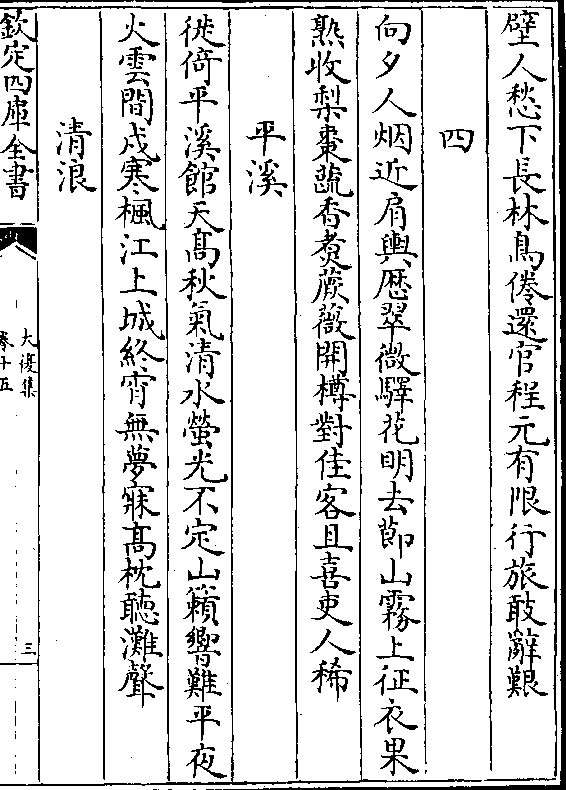 壁人愁下長林鳥倦還官程元有限行旅敢辭艱
四
向夕人烟近肩輿歷翠微驛花明去節山霧上征衣果
熟收梨棗蔬香煑蕨薇開樽對佳客且喜吏人稀
平溪
徙倚平溪館天髙秋氣清水螢光不定山籟響難平夜
火雲間戍寒楓江上城終宵無夢寐髙枕聽灘聲
清浪
欽定四庫全書
大復集
卷十五
三